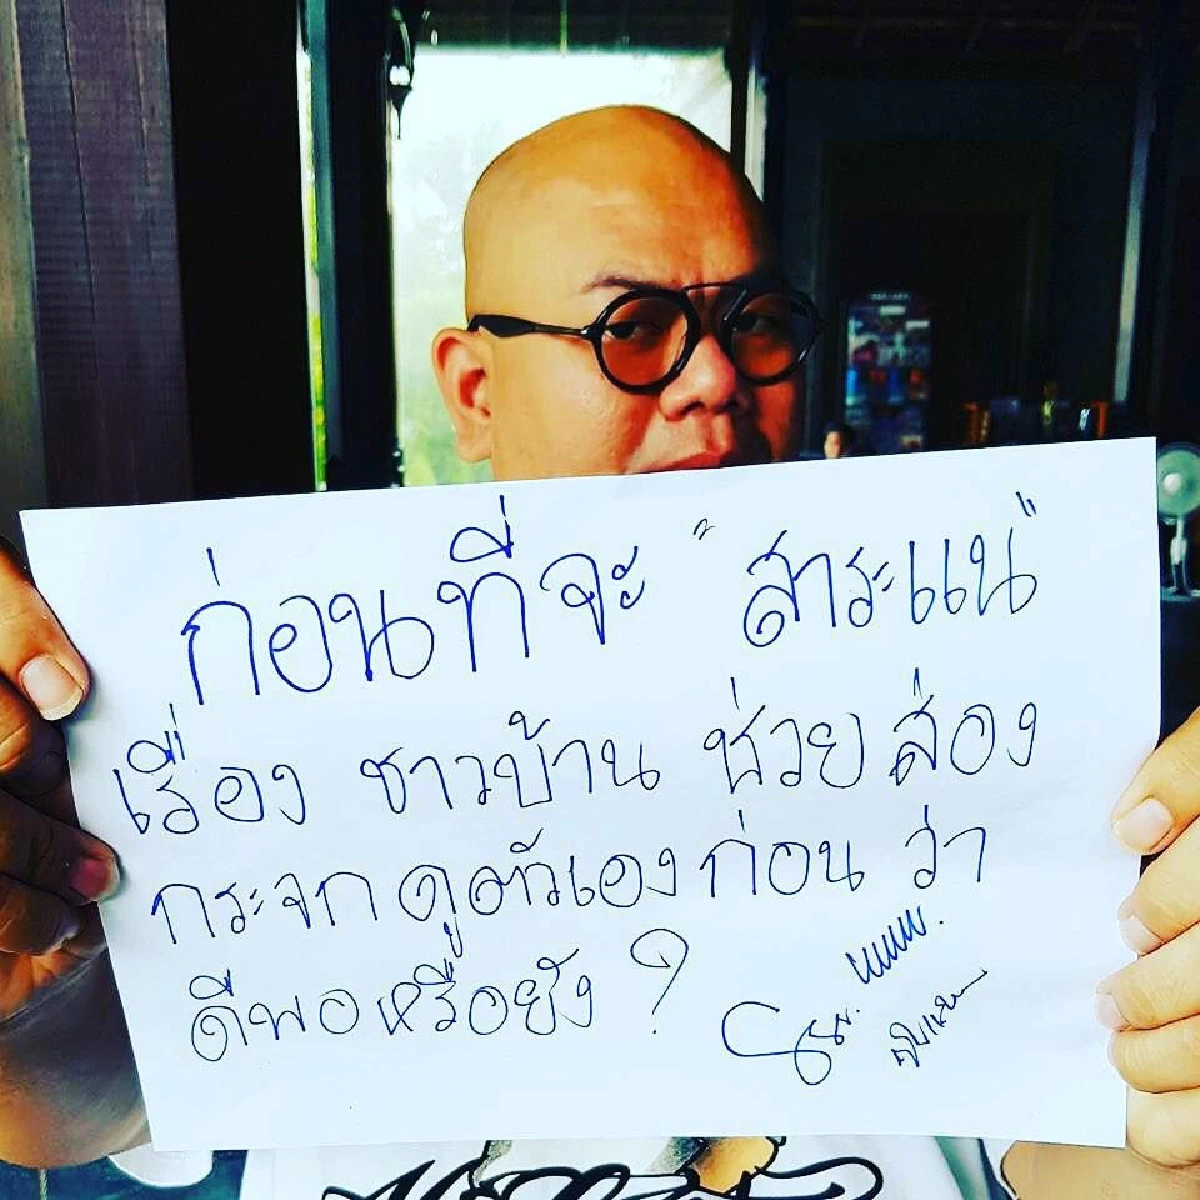 ก่อนที่จะ "สาระแน"
เรื่อง ชาวบ้าน ช่วย ส่อง
กระจก ดูตัวเองก่อน ว่า
ดีพอหรือยัง ?